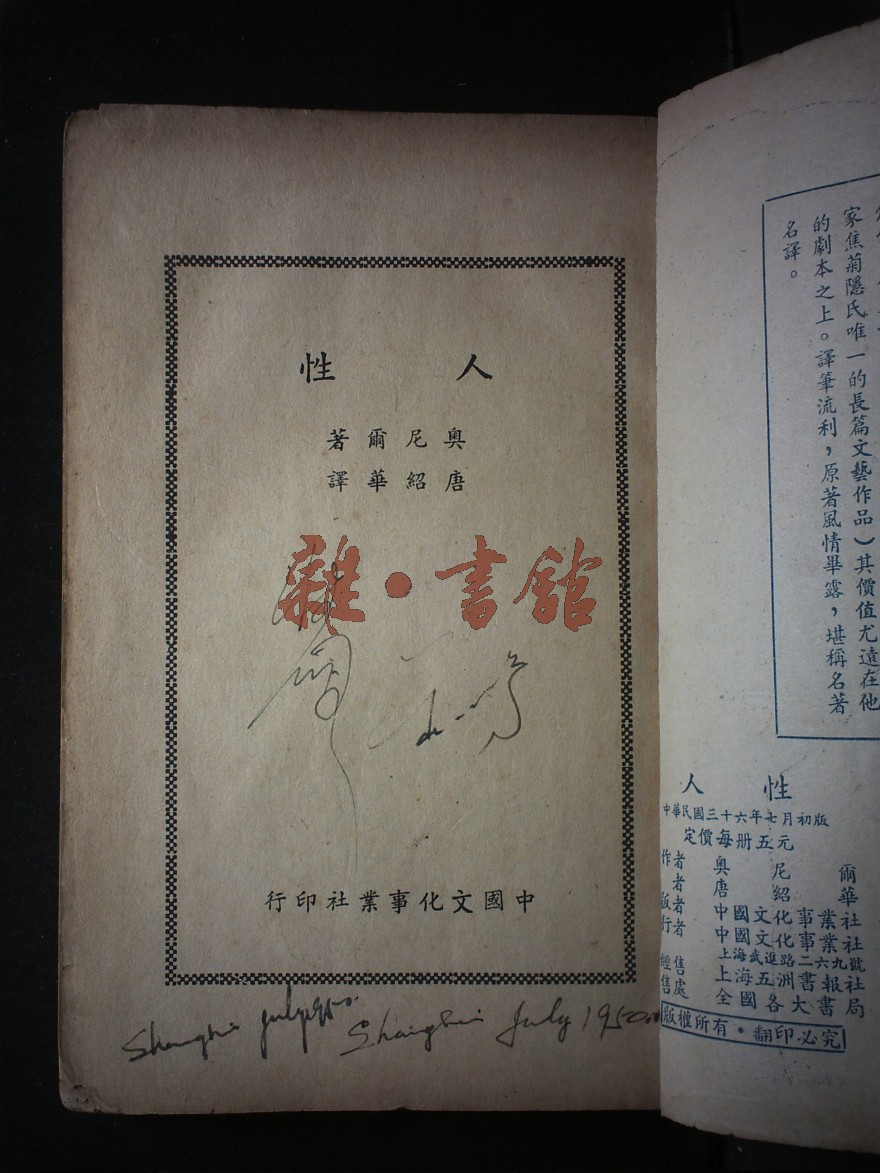 人性
奧尼爾著
唐紹華譯
雜·書館
中國文化事業社印行
Shanghai July 1950.
Shanghai July 1950
家焦菊隱氏唯一的長篇文藝作品)其價值尤遠在他
的劇本之上。譯筆流利,原著風情畢露,堪稱名著
名譯。
人性
中華民國三十六年七月初版
定價每冊五元
作者 奧尼爾
者 唐紹華
版者 中國文化事業社
行者 中國文化事業社
上海武進路二六九號
經售 上海五洲書報社
售處 全國各大書局
版權所有·翻印必究